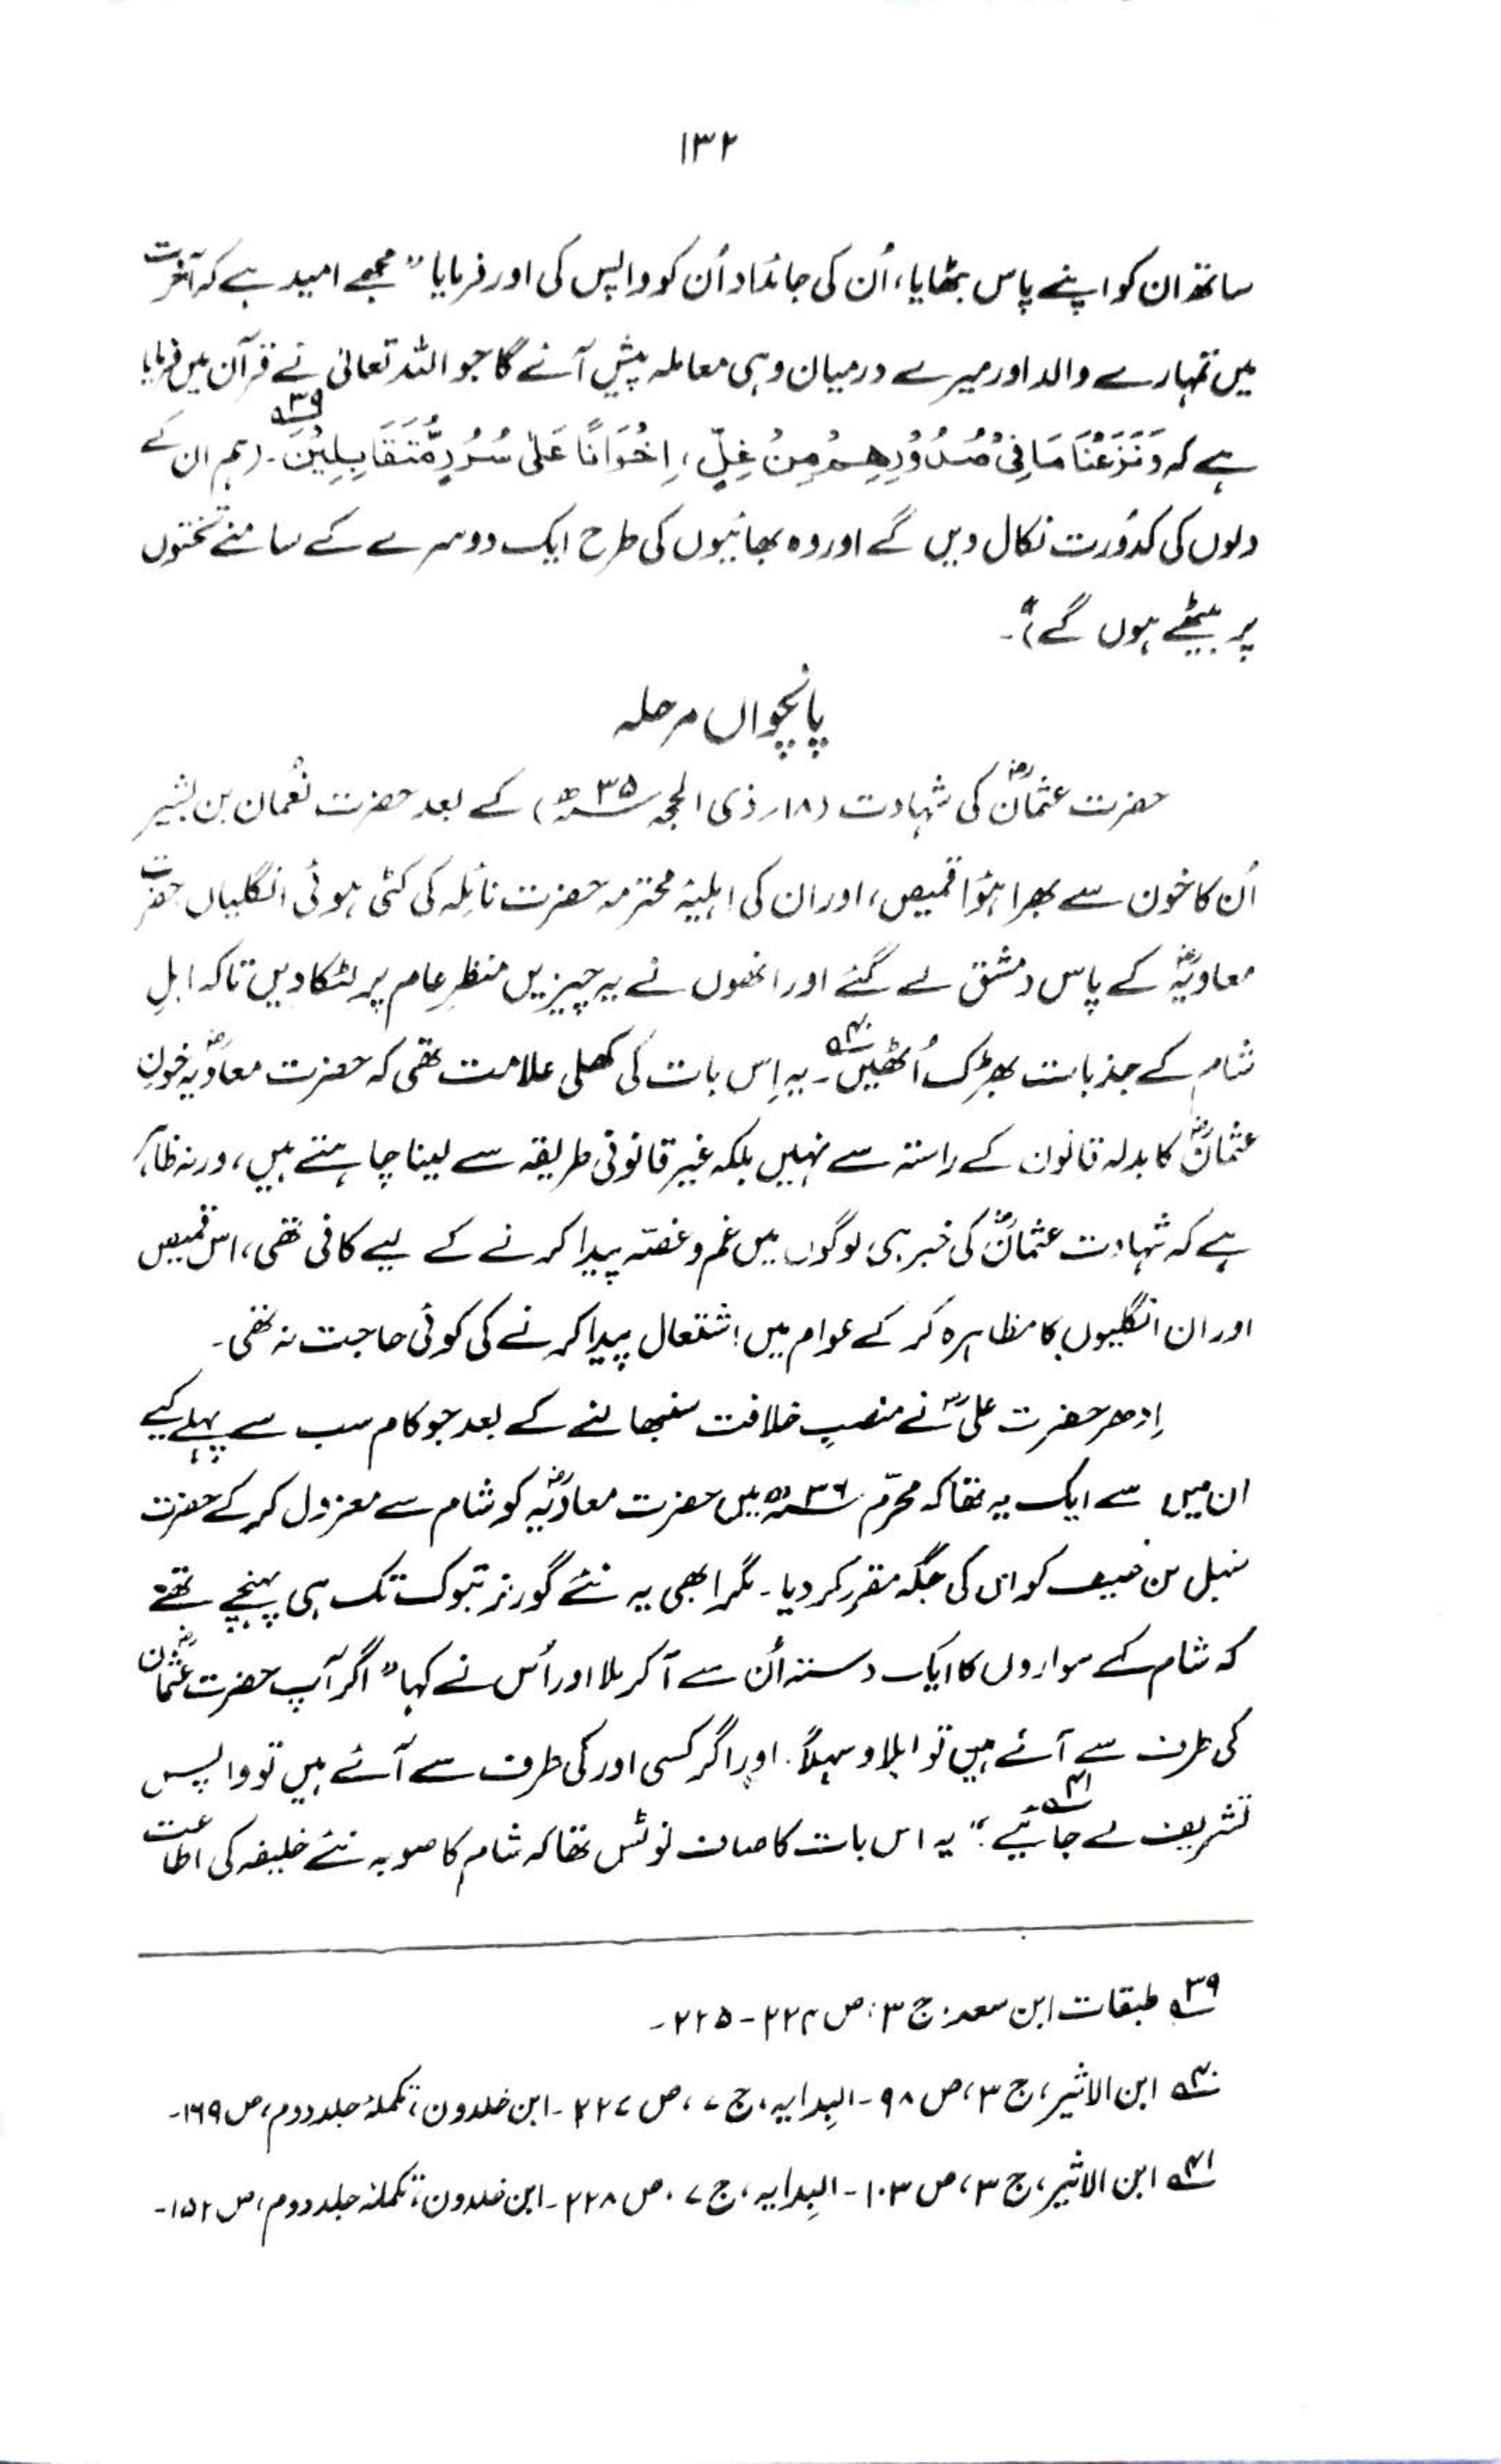 ۱۳۲
ساتھ ان کو اپنے پاس بٹھایا، اُن کی جائداد اُن کو واپس کی اور فرمایا ”مجھے امید ہے کہ آخرت
میں تمہارے والد اور میرے درمیان وہی معاملہ پیش آئے گا جو اللہ تعالیٰ نے قرآن میں فرمایا
ہے کہ وَنَزَعْنَا مَا فِیْ صُدُوْرِھِمْ مِنْ غِلٍّ، اِخْوَانًا عَلیٰ سُرُرٍ مُّتَقَابِلِیْنَ۳۹؎۔ (ہم ان کے
دلوں کی کدُورت نکال دیں گے اور وہ بھائیوں کی طرح ایک دوسرے کے سامنے تختوں
پر بیٹھے ہوں گے)“۔
پانچواں مرحلہ
حضرت عثمانؓ کی شہادت (۱۸؍ ذی الحجہ ۳۵ھ) کے بعد حضرت نُعمان بن بشیر
اُن کا خون سے بھرا ہؤا قمیص، اور ان کی اہلیۂ محترمہ حضرت نائلہ کی کٹی ہوئی انگلیاں حضرت
معاویہؓ کے پاس دمشق لے گئے اور انھوں نے یہ چیزیں منظرِ عام پر لٹکا دیں تاکہ اہلِ
شام کے جذبات بھڑک اُٹھیں۴۰؎۔ یہ اِس بات کی کھلی علامت تھی کہ حضرت معاویہؓ خونِ
عثمانؓ کا بدلہ قانون کے راستہ سے نہیں بلکہ غیر قانونی طریقہ سے لینا چاہتے ہیں، ورنہ ظاہر
ہے کہ شہادت عثمانؓ کی خبر ہی لوگوں میں غم و غصّہ پیدا کرنے کے لیے کافی تھی، اس قمیص
اور ان انگلیوں کا مظاہرہ کر کے عوام میں اشتعال پیدا کرنے کی کوئی حاجت نہ تھی۔
اِدھر حضرت علیؓ نے منصبِ خلافت سنبھالنے کے بعد جو کام سب سے پہلے کیے
ان میں سے ایک یہ تھا کہ محرّم ۳۶ھ میں حضرت معاویہؓ کو شام سے معزول کر کے حضرت
سہل بن حنیف کو ان کی جگہ مقرر کر دیا۔ مگر ابھی یہ نئے گورنر تبوک تک ہی پہنچے تھے
کہ شام کے سواروں کا ایک دستہ اُن سے آ کر ملا اور اُس نے کہا ”اگر آپ حضرت عثمانؓ
کی طرف سے آئے ہیں تو اہلاً و سہلاً۔ اور اگر کسی اور کی طرف سے آئے ہیں تو واپس
تشریف لے جائیے۴۱؎۔“ یہ اس بات کا صاف نوٹس تھا کہ شام کا صوبہ نئے خلیفہ کی اطاعت
۳۹؎ طبقات ابن سعد: ج ۳، ص ۲۲۴-۲۲۵۔
۴۰؎ ابن الاثیر، ج ۳، ص ۹۸۔ البِدایہ، ج ۷، ص ۲۲۷۔ ابن خلدون، تکملۂ جلد دوم، ص ۱۶۹۔
۴۱؎ ابن الاثیر، ج ۳، ص ۱۰۳۔ البِدایہ، ج ۷، ص ۲۲۸۔ ابن خلدون، تکملۂ جلد دوم، ص ۱۵۲۔